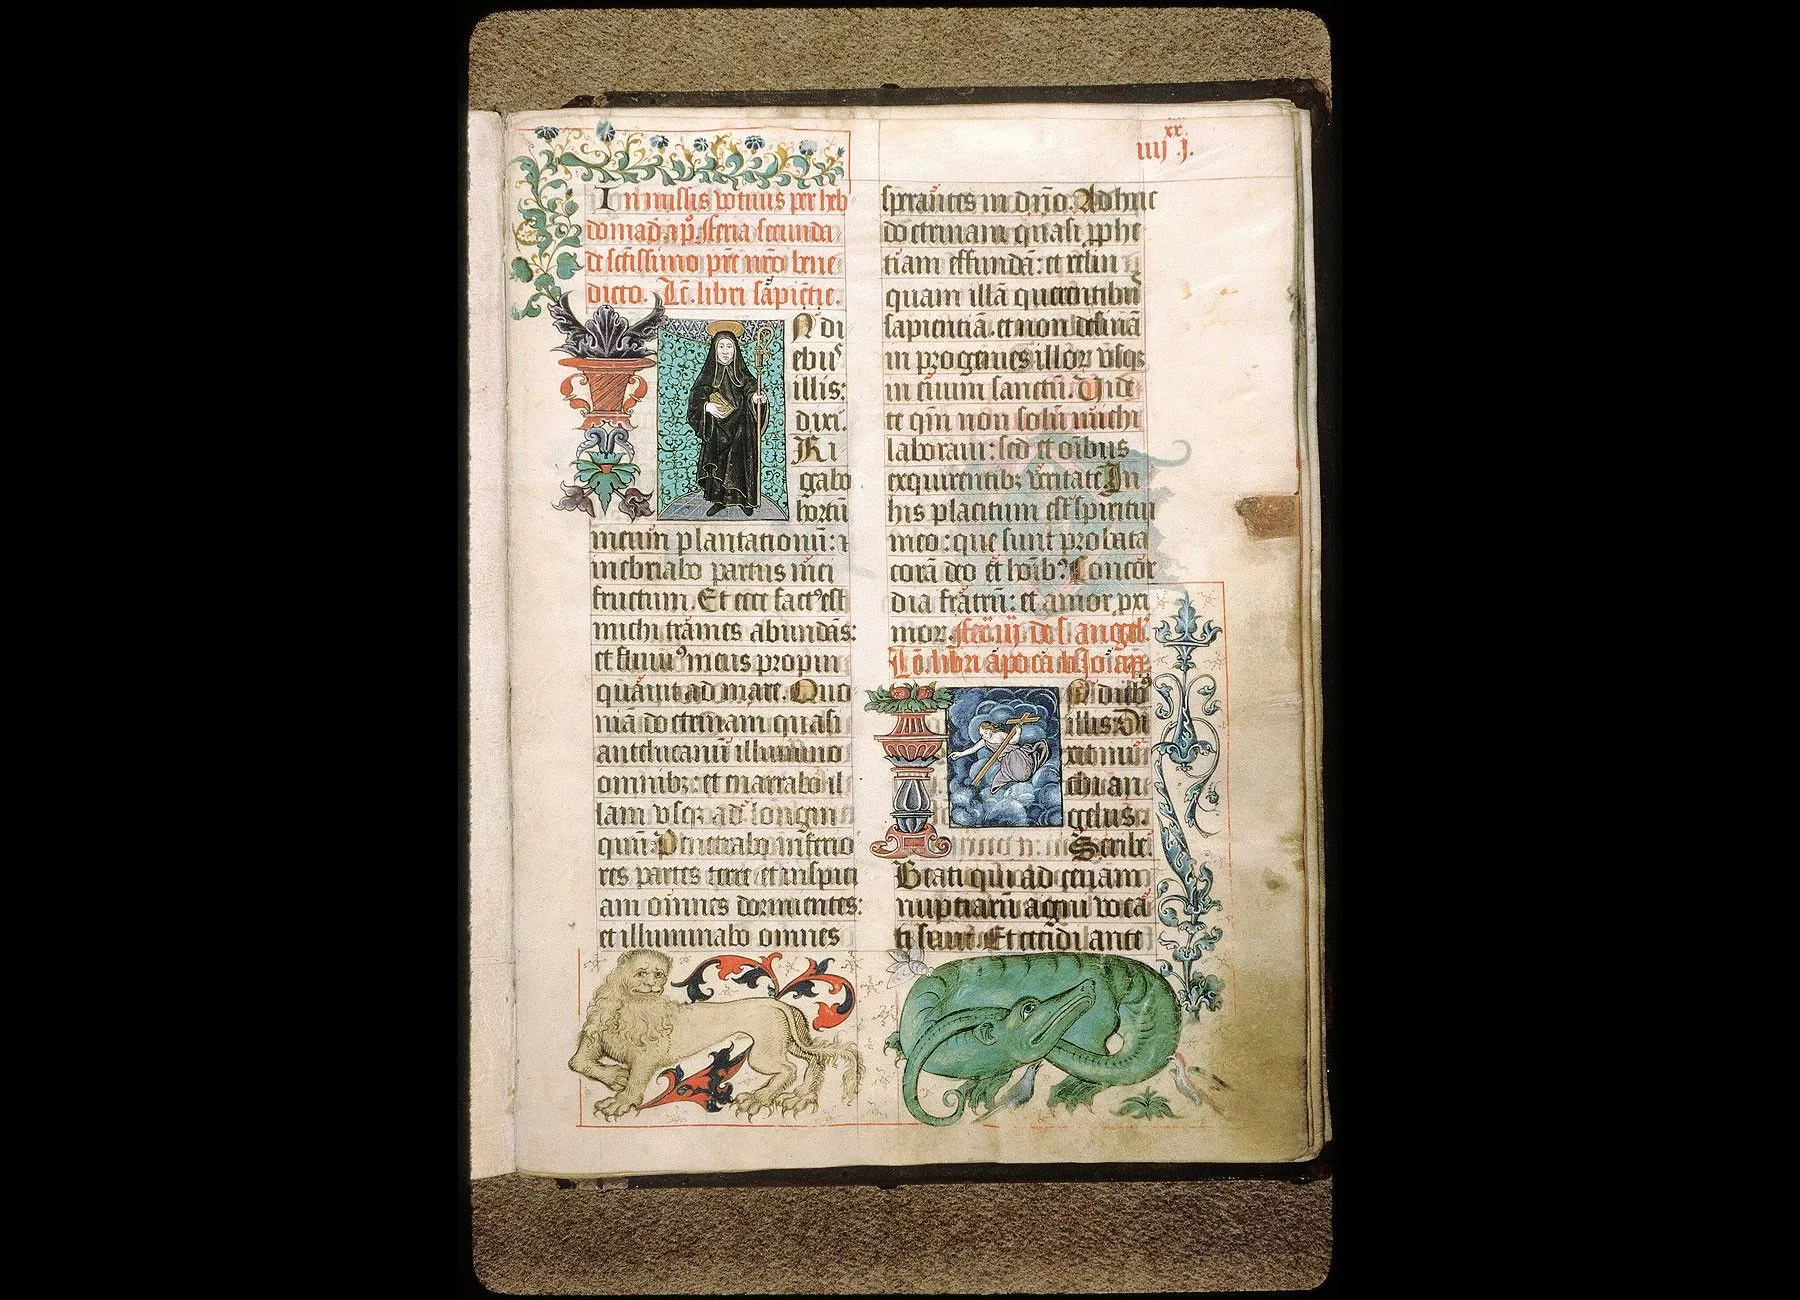 xx
iiij j.
In missis votiuis per heb
domadā ⁊ pº. Feria secunda
de sctissimo pre nro bene
dicto. Lc. libri sapietie.
N di
ebus
illis:
dixi.
Ri
gabo
hortū
meum plantationū: ⁊
inebriabo partus mei
fructum. Et ecce factꝰ est
michi trames abundās:
et fluuiꝰ meus propin
quauit ad mare. Quo
niā doctrinam quasi
antelucanū illumino
omnibꝫ: et enarrabo il
lam vsqꝫ ad longin
quū. Penetrabo inferio
res partes terre et inspici
am omnes dormientes:
et illuminabo omnes
sperātes in dno. Ad huc
doctrinam quasi pphe
tiam effundā: et relin
quam illā querentibus
sapientiā. et non desinā
in progenies illoꝝ vsqꝫ
in euum sanctū. Vide
te qm non solū michi
laboraui: sed et oībus
exquirentibꝫ veritatē. In
his placitum est spiritui
meo: que sunt probata
corā deo et hoībꝰ. Concor
dia fratrū: et amor pxi
moꝝ. Fer. iij. de s. angel.
Lc. libri apoca. bti Joh. ap.
N diebꝰ
illis. Di
xit mi
chi an
gelus:
Scribe.
Beati qui ad cenam
nuptiarū agni voca
ti sunt. Et cecidi ante